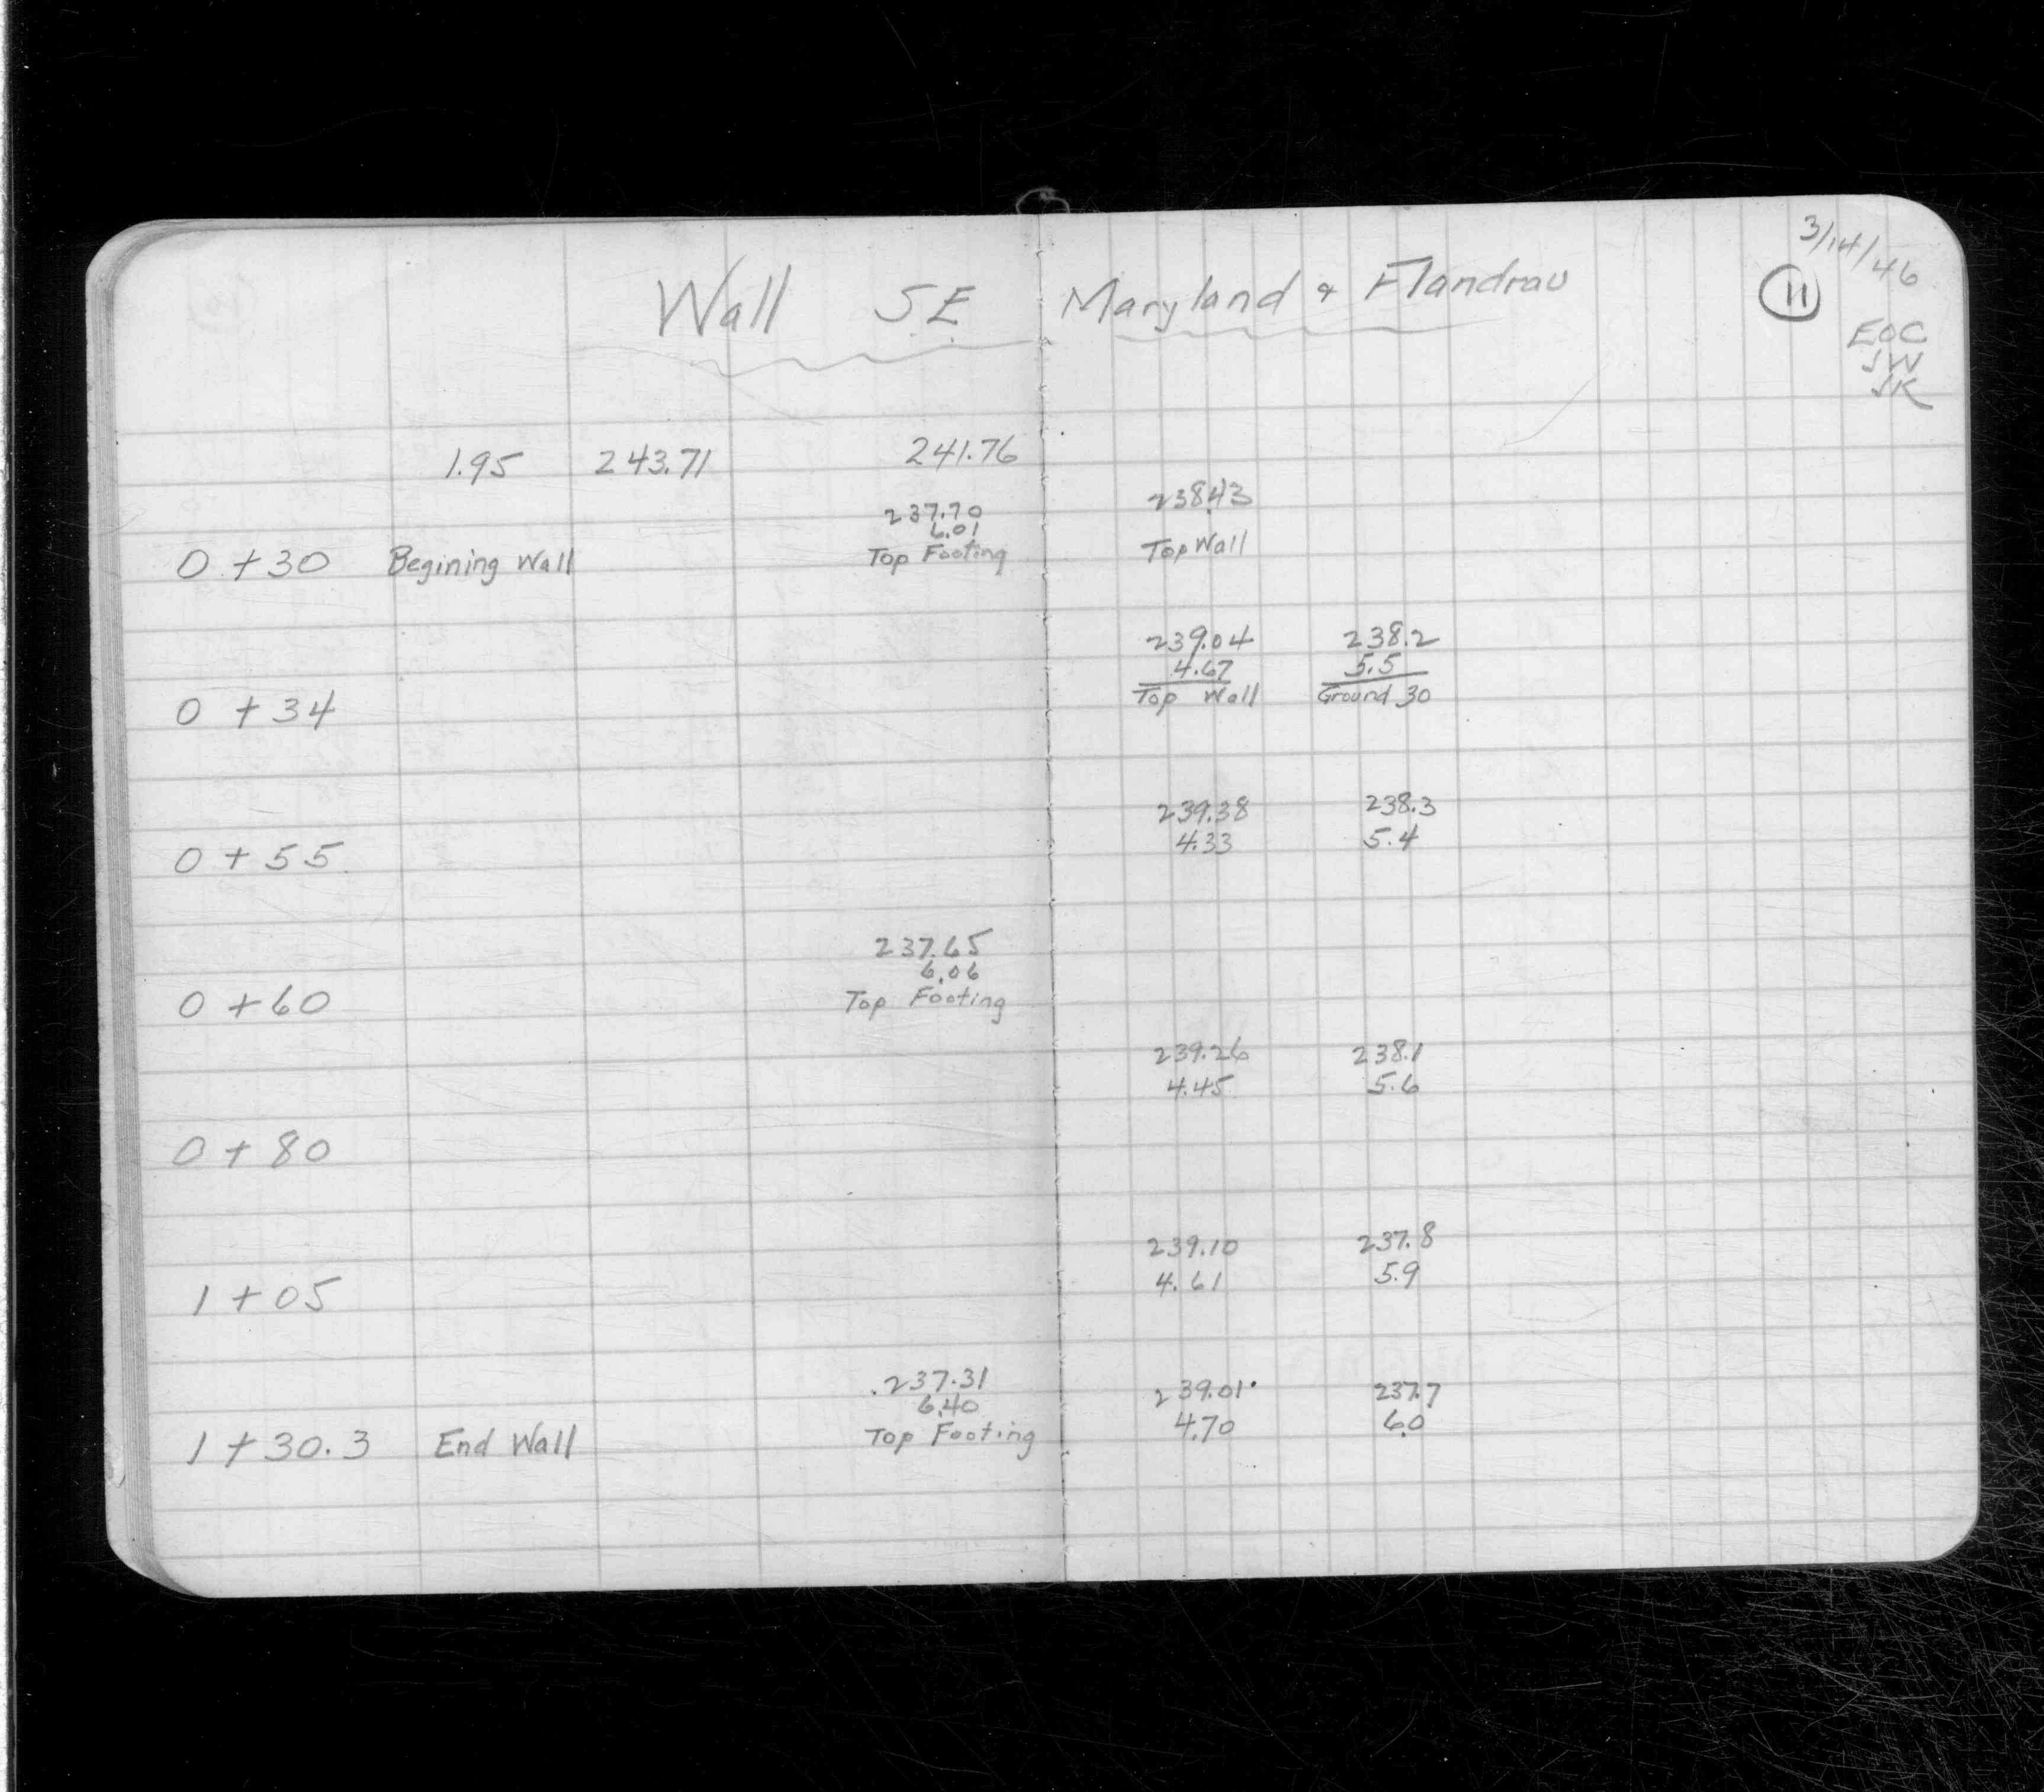 3/14/46
Wall S.E. Maryland & Flandrau
11
EOC
JW
JK
1.95 243.71 241.76
237.70 238.43
6.01
0+30 Begining Wall Top Footing Top Wall
239.04 238.2
4.67 5.5
0+34 Top Wall Ground 30
239.38 238.3
4.33 5.4
0+55
237.65
6.06
0+60 Top Footing
239.26 238.1
4.45 5.6
0+80
239.10 237.8
4.61 5.9
1+05
237.31 239.01 237.7
6.40 4.70 6.0
1+30.3 End Wall Top Footing